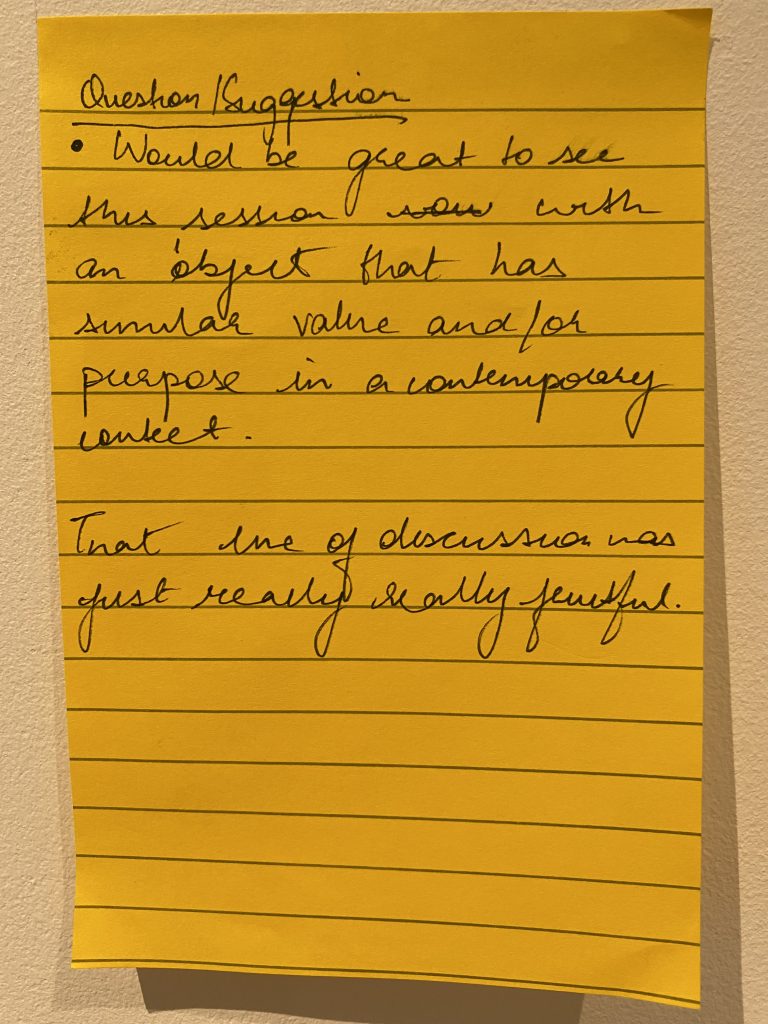 Question/Suggestion
• Would be great to see
this session with
an object that has
similar value and/or
purpose in a contemporary
context.
That line of discussion was
just really really fruitful.